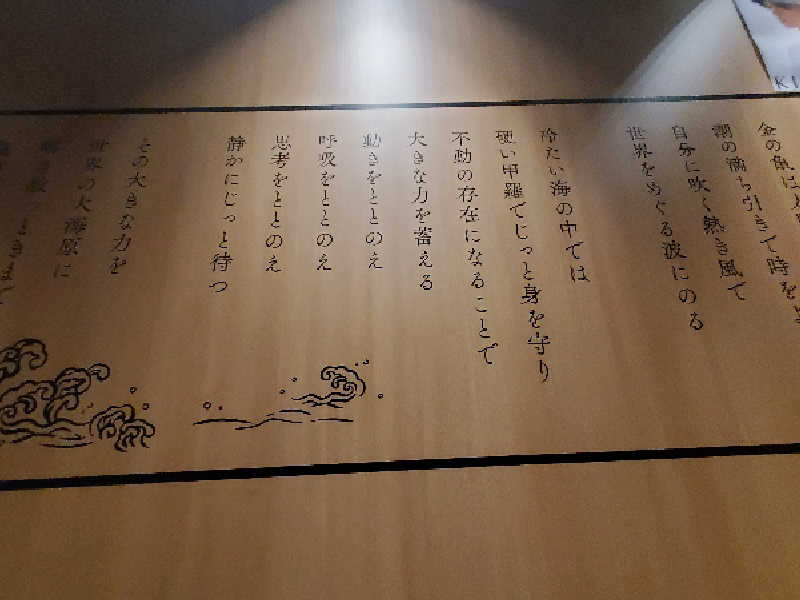 金の亀は
潮の満ち引きで時を
自分に吹く熱き風で
世界をめぐる波にのる
冷たい海の中では
硬い甲羅でじっと身を守り
不動の存在になることで
大きな力を蓄える
動きをととのえ
呼吸をととのえ
思考をととのえ
静かにじっと待つ
その大きな力を
世界の大海原に
ときまで